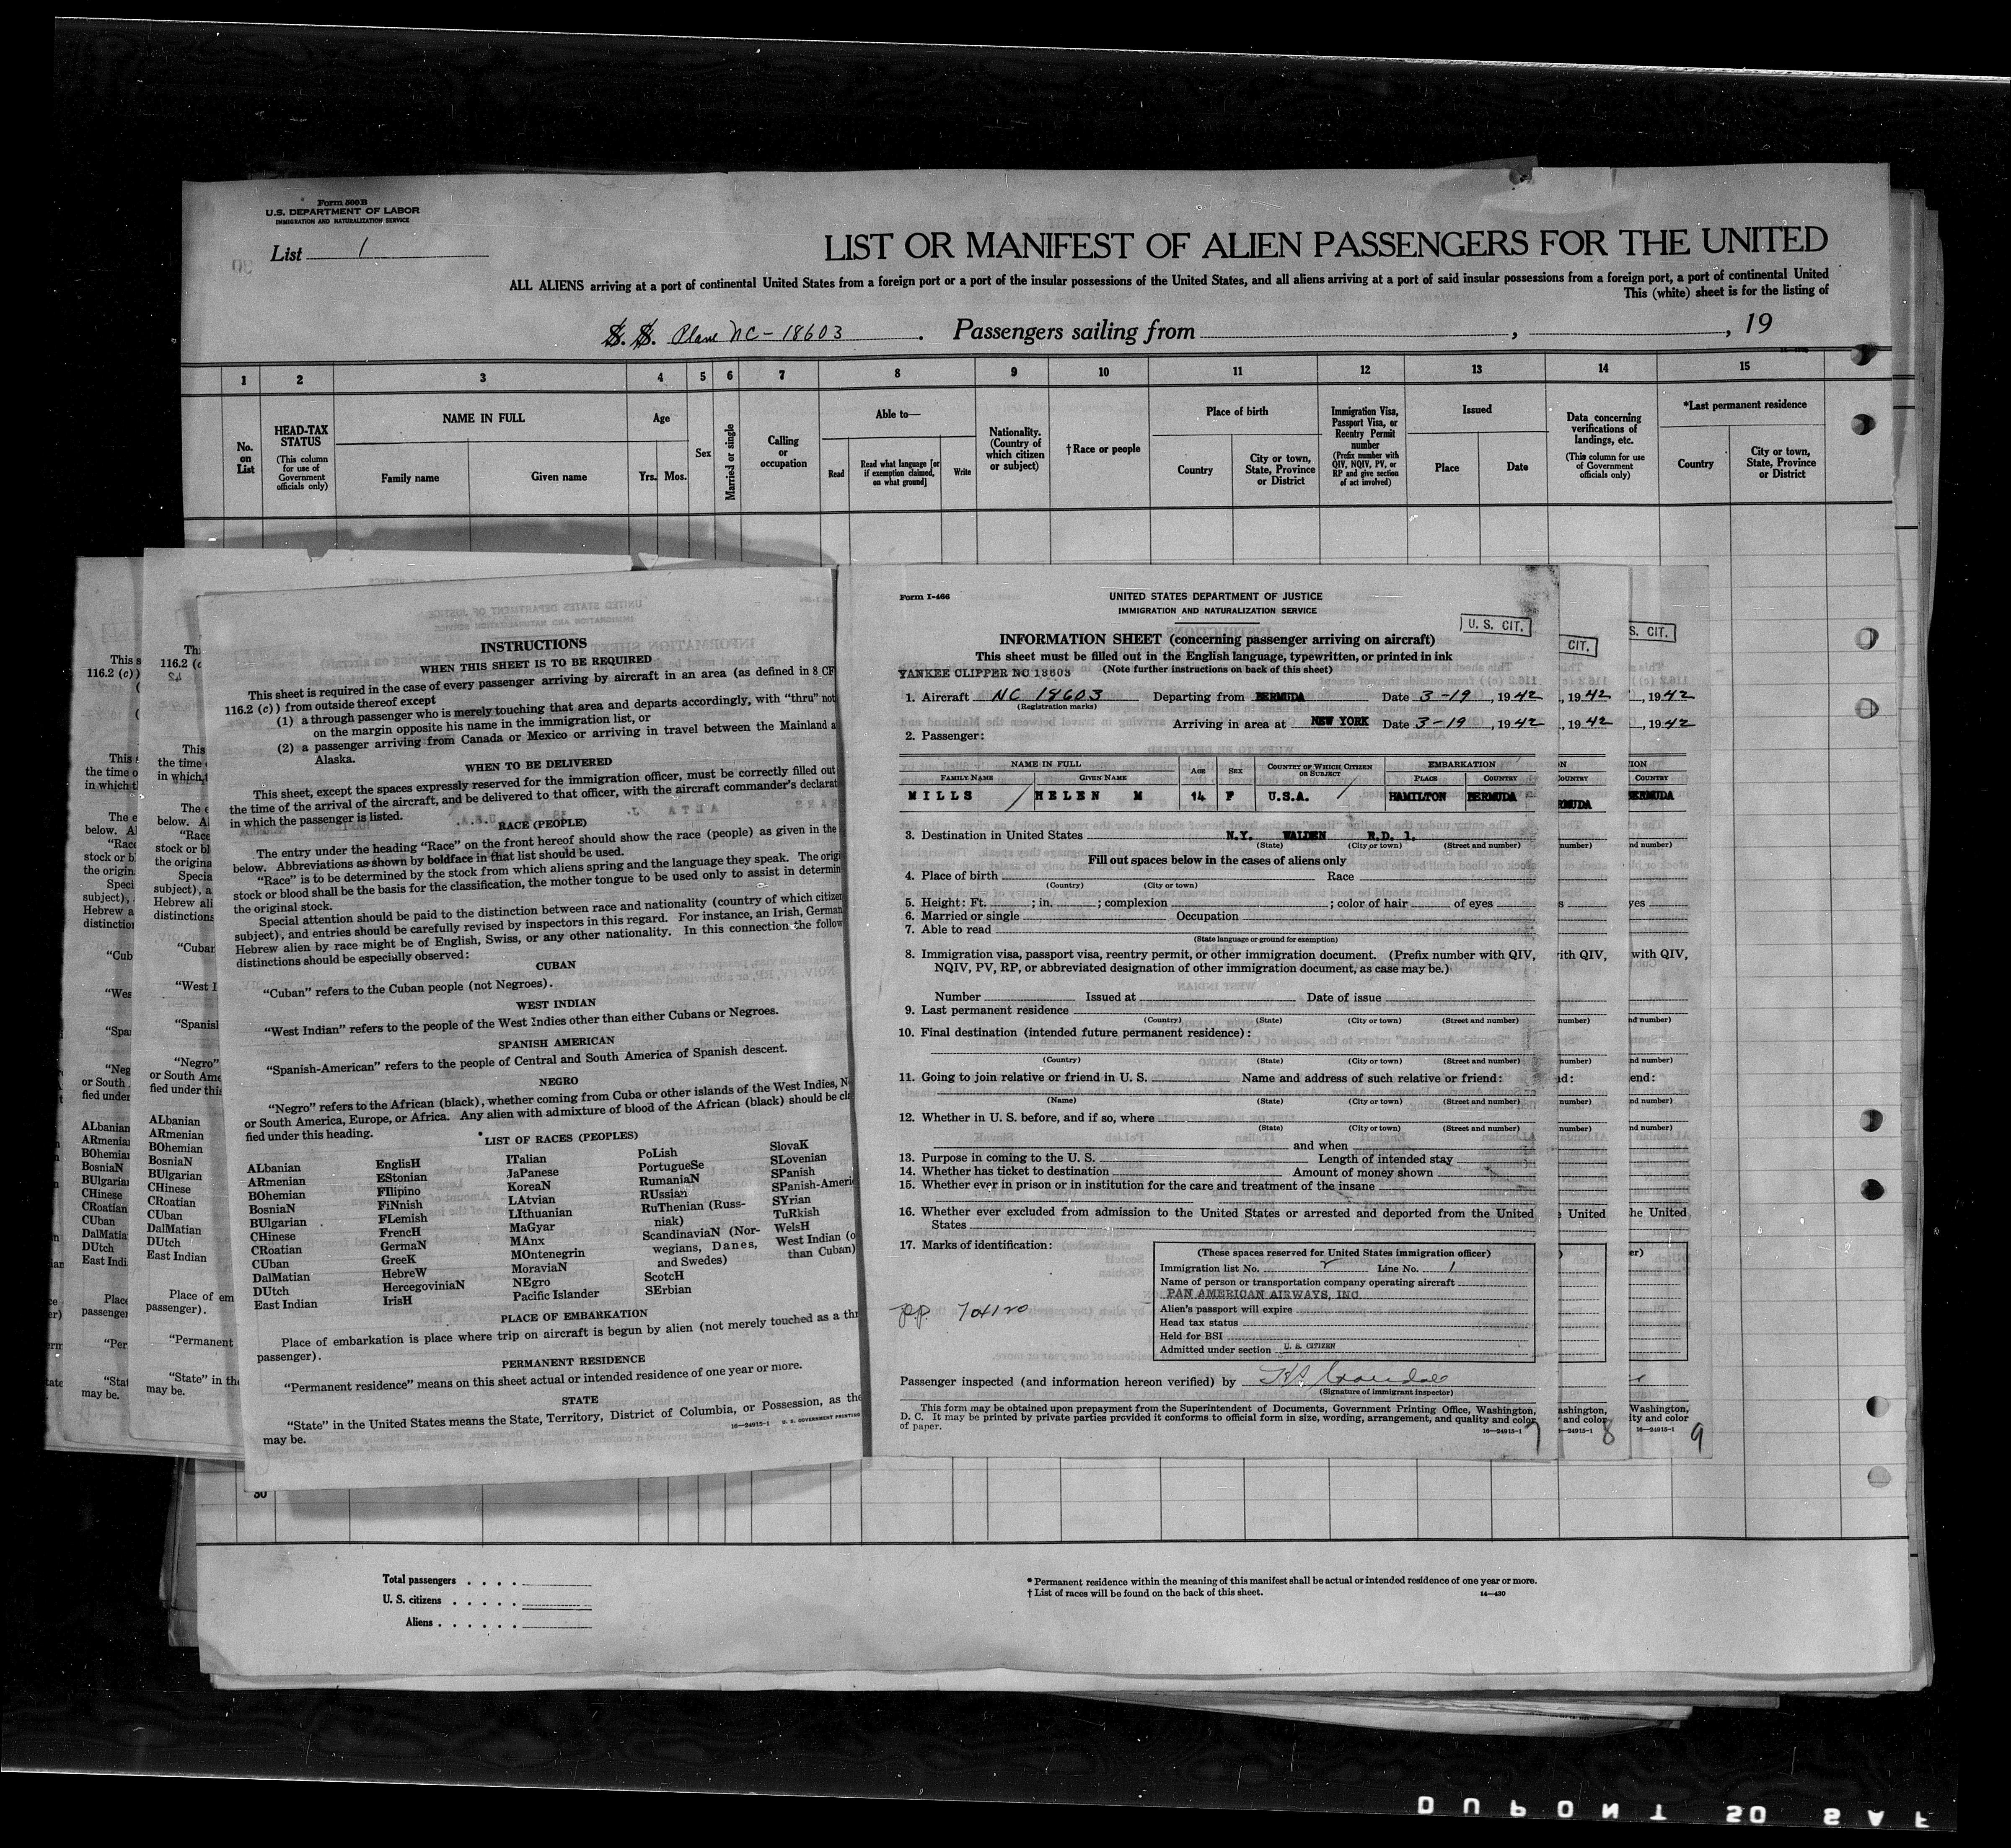 Form 500B
U.S. DEPARTMENT OF LABOR
IMMIGRATION AND NATURALIZATION SERVICE
List 1
LIST OR MANIFEST OF ALIEN PASSENGERS FOR THE UNITED
ALL ALIENS arriving at a port of continental United States from a foreign port or a port of the insular possessions of the United States, and all aliens arriving at a port of said insular possessions from a foreign port, a port of continental United
This (white) sheet is for the listing of
S. S. Plane NC-18603. Passengers sailing from , , 19
1 2 3 4 5 6 7 8 9 10 11 12 13 14 15
No. on List
HEAD-TAX STATUS (This column for use of Government officials only)
NAME IN FULL
Family name Given name
Age
Yrs. Mos.
Sex
Married or single
Calling or occupation
Able to—
Read Read what language [or if exemption claimed, on what ground] Write
Nationality. (Country of which citizen or subject)
†Race or people
Place of birth
Country City or town, State, Province or District
Immigration Visa, Passport Visa, or Reentry Permit number (Prefix number with QIV, NQIV, PV, or RP and give section of act involved)
Issued
Place Date
Data concerning verifications of landings, etc. (This column for use of Government officials only)
*Last permanent residence
Country City or town, State, Province or District
INSTRUCTIONS
WHEN THIS SHEET IS TO BE REQUIRED
This sheet is required in the case of every passenger arriving by aircraft in an area (as defined in 8 CF
116.2 (c)) from outside thereof except
(1) a through passenger who is merely touching that area and departs accordingly, with “thru” not
on the margin opposite his name in the immigration list, or
(2) a passenger arriving from Canada or Mexico or arriving in travel between the Mainland a
Alaska.
WHEN TO BE DELIVERED
This sheet, except the spaces expressly reserved for the immigration officer, must be correctly filled out
the time of the arrival of the aircraft, and be delivered to that officer, with the aircraft commander's declarat
in which the passenger is listed.
RACE (PEOPLE)
The entry under the heading “Race” on the front hereof should show the race (people) as given in the
below. Abbreviations as shown by boldface in that list should be used.
“Race” is to be determined by the stock from which aliens spring and the language they speak. The origi
stock or blood shall be the basis for the classification, the mother tongue to be used only to assist in determin
the original stock.
Special attention should be paid to the distinction between race and nationality (country of which citizen
subject), and entries should be carefully revised by inspectors in this regard. For instance, an Irish, German
Hebrew alien by race might be of English, Swiss, or any other nationality. In this connection the follow
distinctions should be especially observed:
CUBAN
“Cuban” refers to the Cuban people (not Negroes).
WEST INDIAN
“West Indian” refers to the people of the West Indies other than either Cubans or Negroes.
SPANISH AMERICAN
“Spanish-American” refers to the people of Central and South America of Spanish descent.
NEGRO
“Negro” refers to the African (black), whether coming from Cuba or other islands of the West Indies, N
or South America, Europe, or Africa. Any alien with admixture of blood of the African (black) should be cla
fied under this heading.
LIST OF RACES (PEOPLES)
ALbanian
ARmenian
BOhemian
BosniaN
BUlgarian
CHinese
CRoatian
CUban
DalMatian
DUtch
East Indian
EnglisH
EStonian
FIlipino
FiNnish
FLemish
FrencH
GermaN
GreeK
HebreW
HercegoviniaN
IrisH
ITalian
JaPanese
KoreaN
LAtvian
LIthuanian
MaGyar
MAnx
MOntenegrin
MoraviaN
NEgro
Pacific Islander
PoLish
PortugueSe
RumaniaN
RUssian
RuThenian (Russ-
niak)
ScandinaviaN (Nor-
wegians, Danes,
and Swedes)
ScotcH
SErbian
SlovaK
SLovenian
SPanish
SPanish-Ameri
SYrian
TuRkish
WelsH
West Indian (o
than Cuban)
PLACE OF EMBARKATION
Place of embarkation is place where trip on aircraft is begun by alien (not merely touched as a thr
passenger).
PERMANENT RESIDENCE
“Permanent residence” means on this sheet actual or intended residence of one year or more.
STATE
“State” in the United States means the State, Territory, District of Columbia, or Possession, as the
may be.
16—24915-1 U. S. GOVERNMENT PRINTING
Form I-466
UNITED STATES DEPARTMENT OF JUSTICE
IMMIGRATION AND NATURALIZATION SERVICE
U. S. CIT.
INFORMATION SHEET (concerning passenger arriving on aircraft)
This sheet must be filled out in the English language, typewritten, or printed in ink
YANKEE CLIPPER NC 18603 (Note further instructions on back of this sheet)
1. Aircraft NC 18603 Departing from BERMUDA Date 3-19, 1942
(Registration marks)
Arriving in area at NEW YORK Date 3-19, 1942
2. Passenger:
NAME IN FULL
FAMILY NAME GIVEN NAME AGE SEX COUNTRY OF WHICH CITIZEN OR SUBJECT EMBARKATION PLACE COUNTRY
MILLS / HELEN M 14 F U.S.A. / HAMILTON BERMUDA
3. Destination in United States N.Y. WALDEN R.D. 1.
(State) (City or town) (Street and number)
Fill out spaces below in the cases of aliens only
4. Place of birth Race
(Country) (City or town)
5. Height: Ft. ; in. ; complexion ; color of hair of eyes
6. Married or single Occupation
7. Able to read
(State language or ground for exemption)
8. Immigration visa, passport visa, reentry permit, or other immigration document. (Prefix number with QIV,
NQIV, PV, RP, or abbreviated designation of other immigration document, as case may be.)
Number Issued at Date of issue
9. Last permanent residence
(Country) (State) (City or town) (Street and number)
10. Final destination (intended future permanent residence):
(Country) (State) (City or town) (Street and number)
11. Going to join relative or friend in U. S. Name and address of such relative or friend:
(Name) (State) (City or town) (Street and number)
12. Whether in U. S. before, and if so, where
(State) (City or town) (Street and number)
and when
13. Purpose in coming to the U. S. Length of intended stay
14. Whether has ticket to destination Amount of money shown
15. Whether ever in prison or in institution for the care and treatment of the insane
16. Whether ever excluded from admission to the United States or arrested and deported from the United
States
17. Marks of identification:
(These spaces reserved for United States immigration officer)
Immigration list No. 2 Line No. 1
Name of person or transportation company operating aircraft
PAN AMERICAN AIRWAYS, INC
Alien's passport will expire
Head tax status
Held for BSI
Admitted under section U. S. CITIZEN
P.P. 704120
Passenger inspected (and information hereon verified) by
(Signature of immigrant inspector)
This form may be obtained upon prepayment from the Superintendent of Documents, Government Printing Office, Washington,
D. C. It may be printed by private parties provided it conforms to official form in size, wording, arrangement, and quality and color
of paper.
16—24915-1
7
8
9
30
Total passengers
U. S. citizens
Aliens
* Permanent residence within the meaning of this manifest shall be actual or intended residence of one year or more.
† List of races will be found on the back of this sheet.
14—430
DUPONT 20 SAF